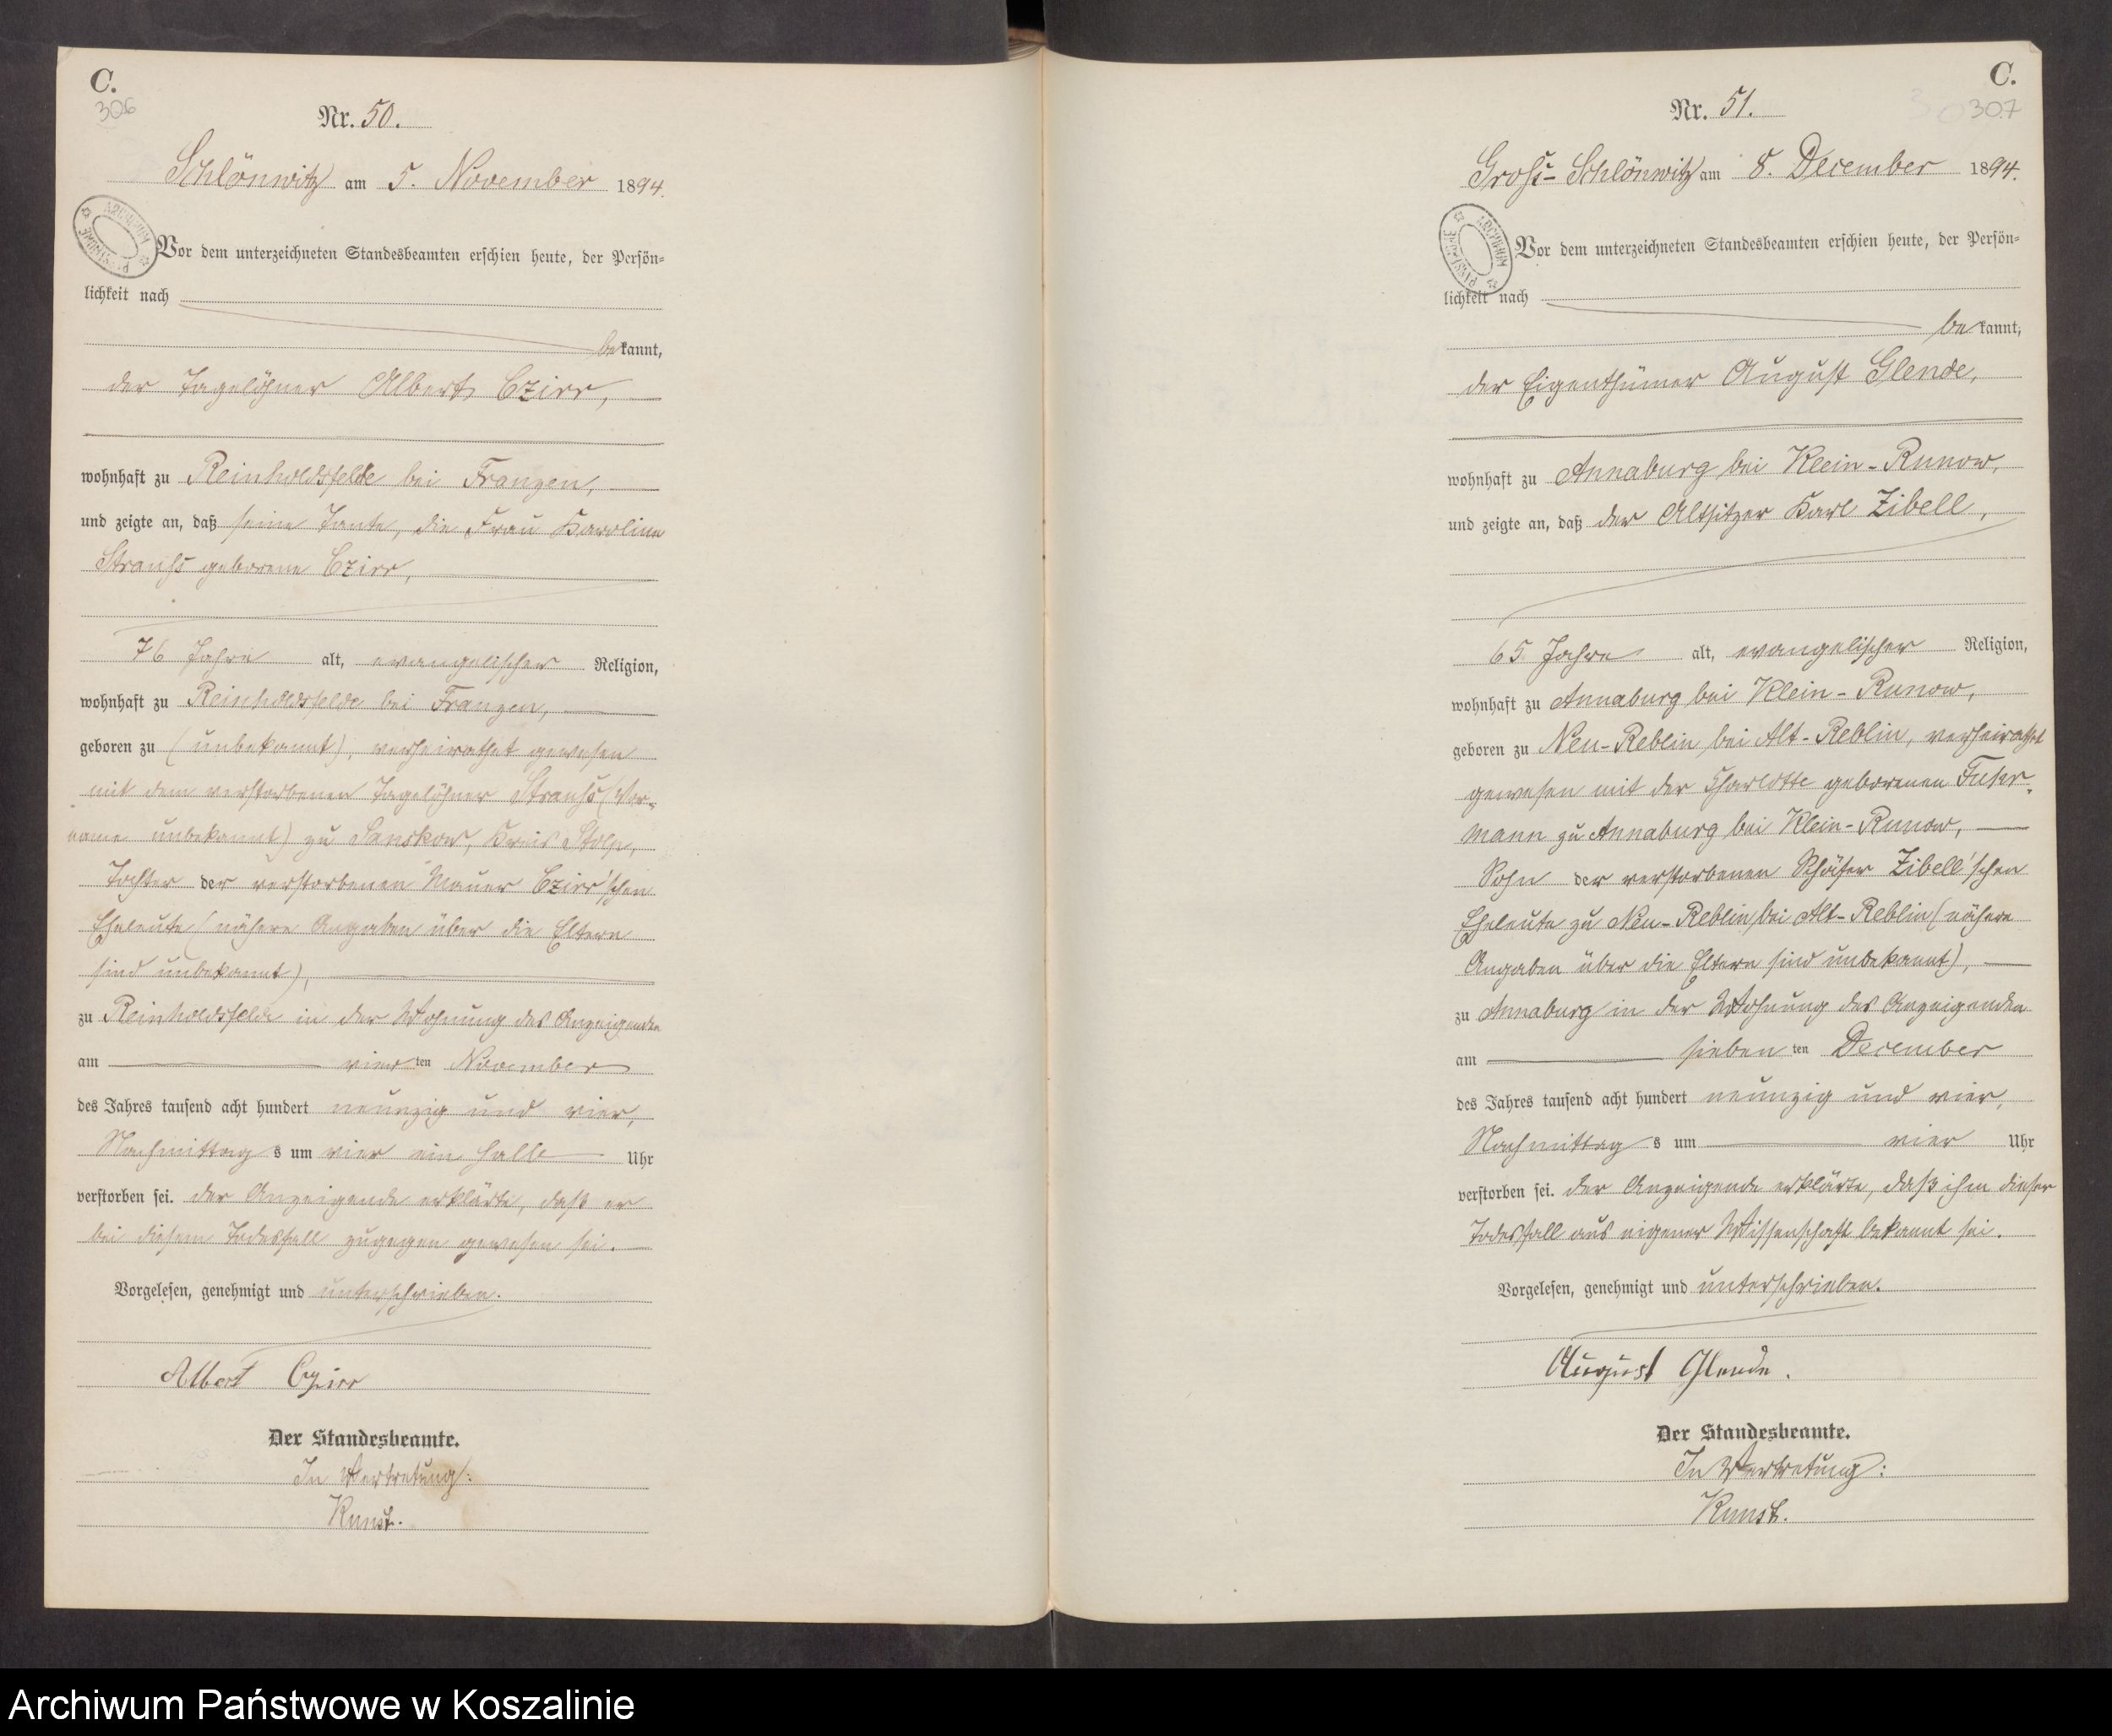 C.
306
Nr. 50.
Schlönwitz am 5. November 1894.
ARCHIWUM PAŃSTWOWE
Vor dem unterzeichneten Standesbeamten erschien heute, der Persön-
lichkeit nach
bekannt,
der Tagelöhner Albert Czirr,
wohnhaft zu Reinholdsfelde bei Franzen,
und zeigte an, daß seine Tante, die Frau Karoline
Strauß geborene Czirr,
76 Jahre alt, evangelischer Religion,
wohnhaft zu Reinholdsfelde bei Franzen,
geboren zu (unbekannt), verheirathet gewesen
mit dem verstorbenen Tagelöhner Strauß (Vor-
name unbekannt) zu Sanskow, Kreis Stolp,
Tochter der verstorbenen Mauer Czirr'schen
Eheleute (nähere Angaben über die Eltern
sind unbekannt),
zu Reinholdsfelde in der Wohnung des Anzeigenden
am vierten November
des Jahres tausend acht hundert neunzig und vier,
Nachmittags um vier ein halb Uhr
verstorben sei. der Anzeigende erklärte, daß er
bei diesem Todesfall zugegen gewesen sei.
Vorgelesen, genehmigt und unterschrieben.
Albert Czirr
Der Standesbeamte.
In Vertretung:
Kunst.
C.
307
Nr. 51.
Groß-Schlönwitz am 8. December 1894.
ARCHIWUM PAŃSTWOWE
Vor dem unterzeichneten Standesbeamten erschien heute, der Persön-
lichkeit nach
bekannt,
der Eigenthümer August Glende,
wohnhaft zu Annaburg bei Klein-Runow,
und zeigte an, daß der Altsitzer Karl Zibell,
65 Jahre alt, evangelischer Religion,
wohnhaft zu Annaburg bei Klein-Runow,
geboren zu Neu-Reblin bei Alt-Reblin, verheirathet
gewesen mit der Charlotte geborenen Fuhr-
mann zu Annaburg bei Klein-Runow,
Sohn der verstorbenen Schäfer Zibell'schen
Eheleute zu Neu-Reblin bei Alt-Reblin (nähere
Angaben über die Eltern sind unbekannt),
zu Annaburg in der Wohnung des Anzeigenden
am siebenten December
des Jahres tausend acht hundert neunzig und vier,
Nachmittags um vier Uhr
verstorben sei. der Anzeigende erklärte, daß ihm dieser
Todesfall aus eigener Wissenschaft bekannt sei.
Vorgelesen, genehmigt und unterschrieben.
August Glende.
Der Standesbeamte.
In Vertretung:
Kunst.
Archiwum Państwowe w Koszalinie